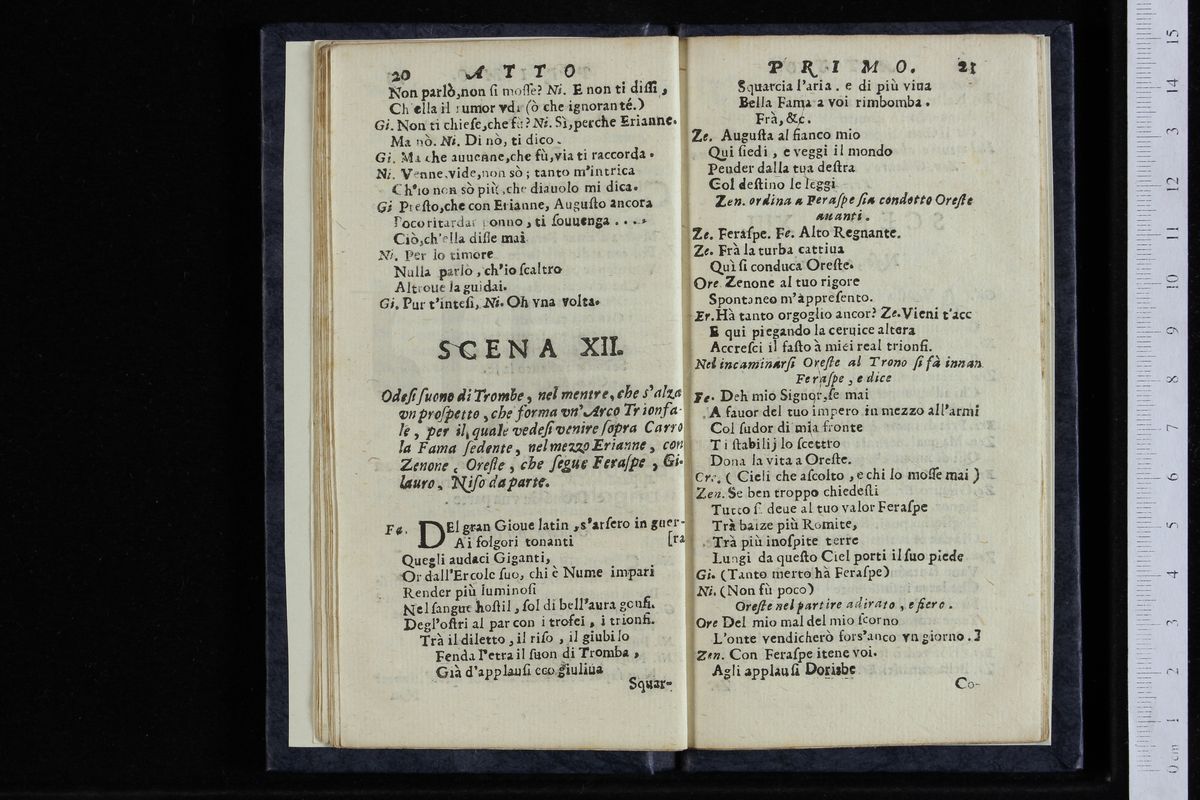 20 ATTO
Non parlò,non ſi moſſe? Ni. E non ti diſſi,
Ch'ella il rumor vdì (ò che ignoranté.)
Gi. Non ti chieſe,che fù? Ni. Sì,perche Erianne.
Ma nò. Ni. Di nò, ti dico.
Gi. Ma che auuenne,che fù,via ti raccorda.
Ni. Venne,vide,non sò; tanto m'intrica
Ch'io non sò più,che diauolo mi dica.
Gi Preſto,che con Erianne, Auguſto ancora
Poco ritardar ponno, ti ſouuenga ....
Ciò,ch'ella diſſe mai
Ni. Per lo timore
Nulla parlò, ch'io ſcaltro
Altroue la guidai.
Gi. Pur t'inteſi, Ni. Oh vna volta.
SCENA XII.
Odeſi ſuono di Trombe, nel mentre, che s'alza
vn proſpetto, che forma vn'Arco Trionfa-
le, per il quale vedeſi venire ſopra Carro
la Fama ſedente, nel mezzo Erianne, con
Zenone, Oreſte, che ſegue Feraſpe, Gi-
lauro, Niſo da parte.
Fa. DEl gran Gioue latin, s'arſero in guer-
Ai folgori tonanti [ra
Quegli audaci Giganti,
Or dall'Ercole ſuo, chi è Nume impari
Render più luminoſi
Nel ſangue hoſtil, ſol di bell'aura gonfi.
Degl'oſtri al par con i trofei, i trionfi.
Trà il diletto, il riſo, il giubilo
Fenda l'etra il ſuon di Tromba,
Già d'applauſi eco giuliua
Squar-
PRIMO. 21
Squarcia l'aria. e di più viua
Bella Fama a voi rimbomba.
Frà, &c.
Ze. Auguſta al fianco mio
Qui ſiedi, e veggi il mondo
Pender dalla tua deſtra
Col deſtino le leggi
Zen. ordina a Feraſpe ſia condotto Oreſte
auanti.
Ze. Feraſpe. Fe. Alto Regnante.
Ze. Frà la turba cattiua
Quì ſi conduca Oreſte.
Ore Zenone al tuo rigore
Spontaneo m'appreſento.
Er. Hà tanto orgoglio ancor? Ze. Vieni t'acc
E qui piegando la ceruice altera
Accreſci il faſto à miei real trionfi.
Nel incaminarſi Oreſte al Trono ſi fà innan
Feraſpe, e dice
Fe. Deh mio Signor,ſe mai
A fauor del tuo impero in mezzo all'armi
Col ſudor di mia fronte
Ti ſtabilij lo ſcettro
Dona la vita a Oreſte.
Ore. (Cieli che aſcolto, e chi lo moſſe mai)
Zen. Se ben troppo chiedeſti
Tutto ſi deue al tuo valor Feraſpe
Trà balze più Romite,
Trà più inoſpite terre
Lungi da queſto Ciel porti il ſuo piede
Gi. (Tanto merto hà Feraſpe)
Ni. (Non fù poco)
Oreſte nel partire adirato, e fiero.
Ore Del mio mal del mio ſcorno
L'onte vendicherò fors'anco vn giorno.
Zen. Con Feraſpe itene voi.
Agli applauſi Dorisbe
Co-